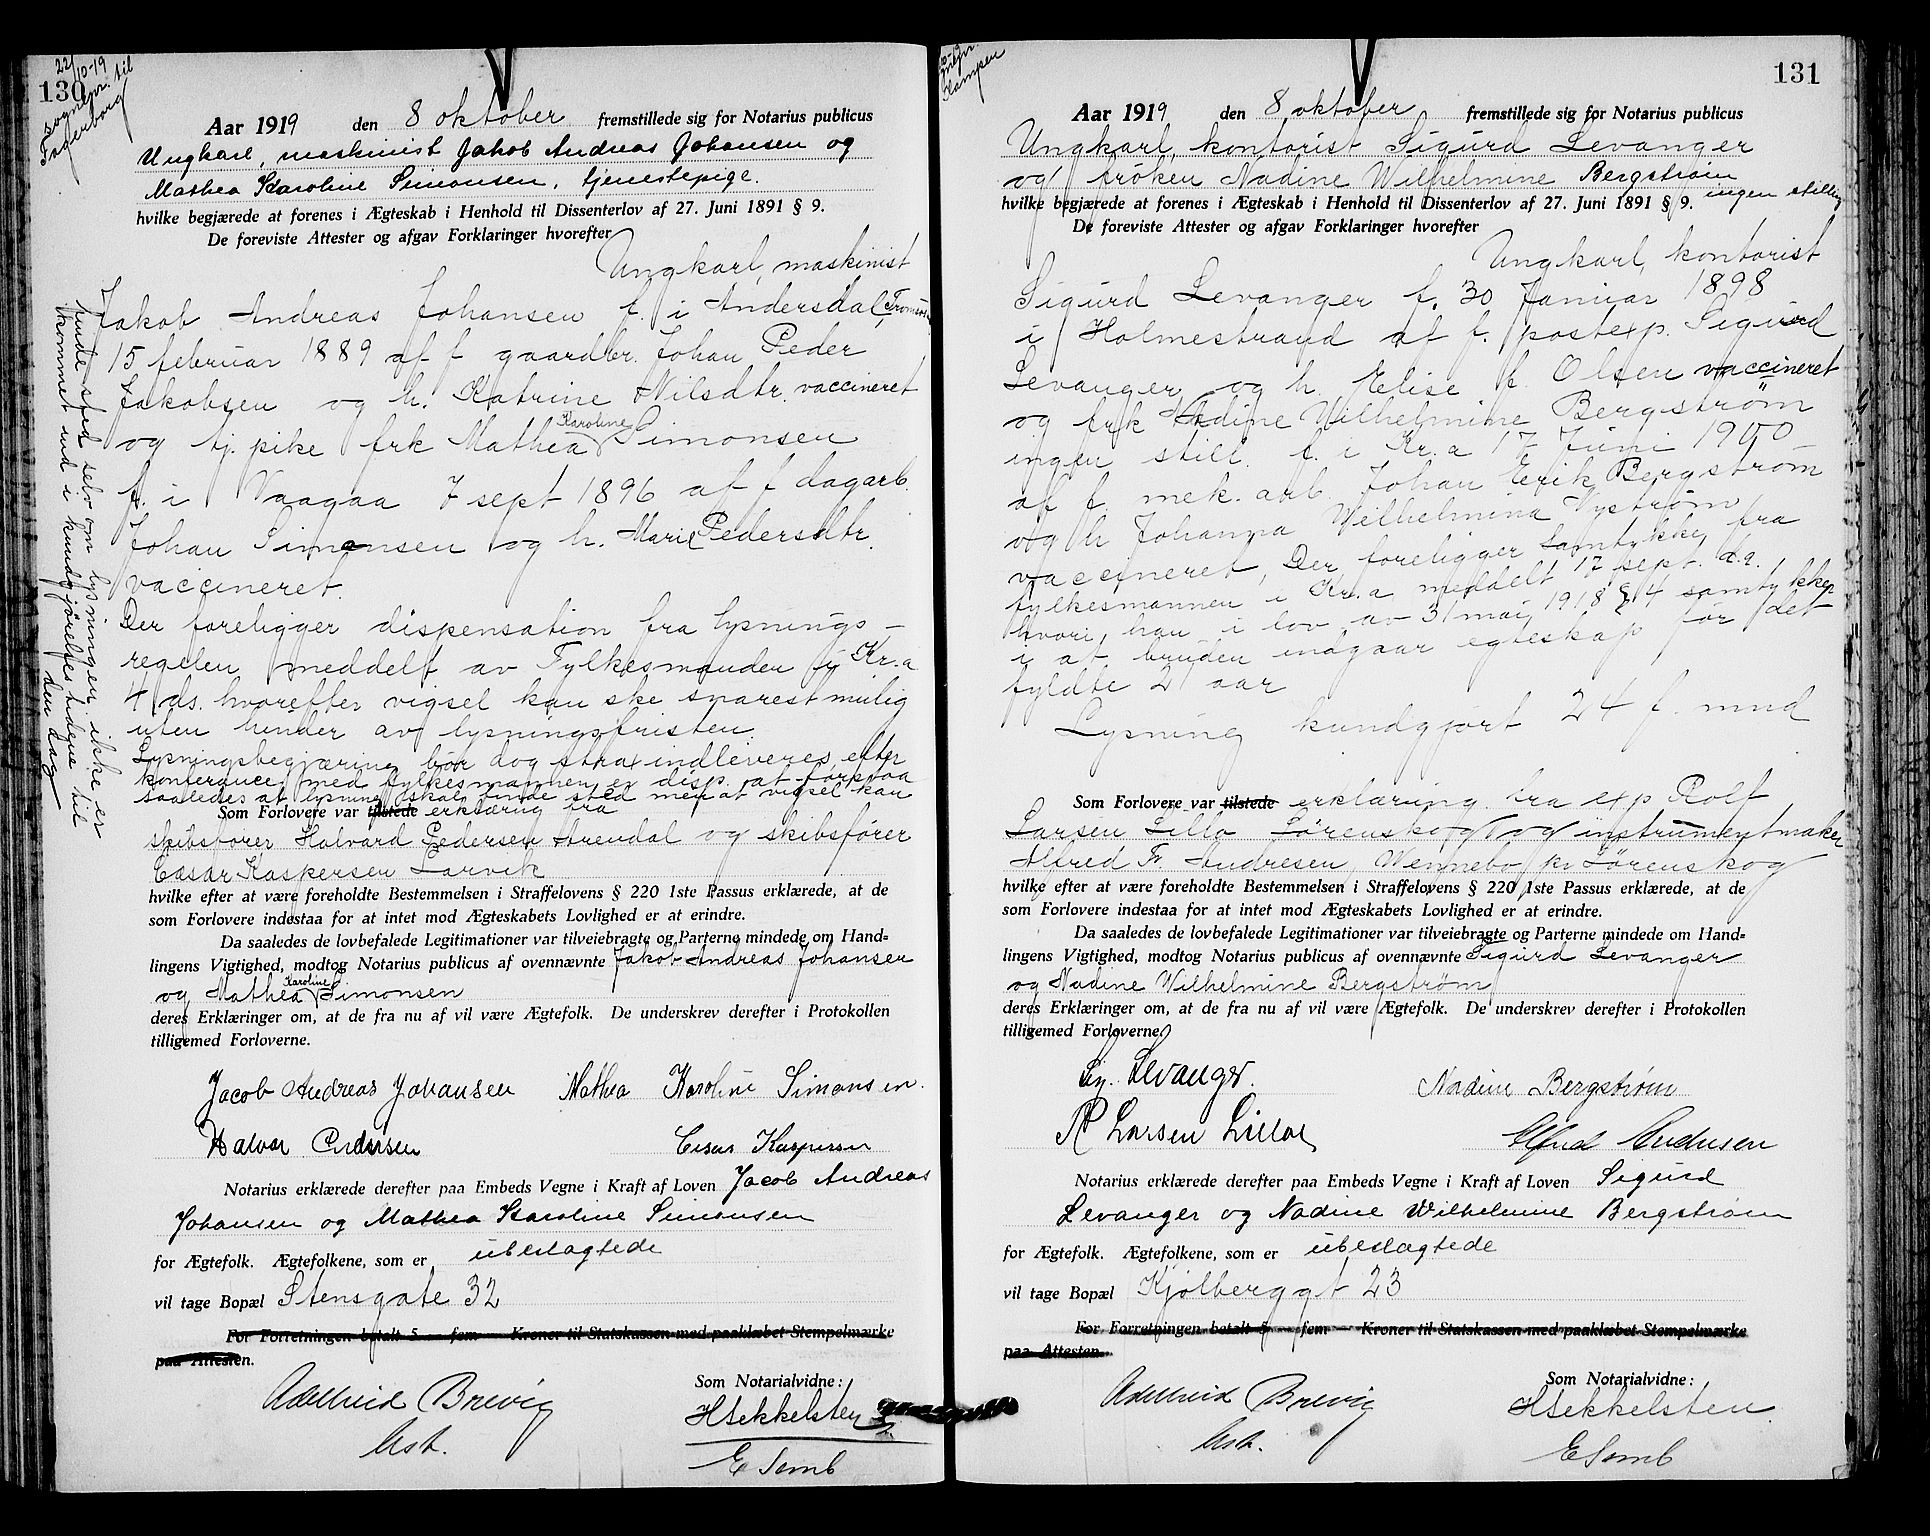 22/10-19
sognepr. til
Fagerborg
130
Aar 1919 den 8 oktober fremstillede sig for Notarius publicus
Ungkarl, maskinist Jakob Andreas Johansen og
Mathea Karoline Simonsen, tjenestepige.
hvilke begjærede at forenes i Ægteskab i Henhold til Dissenterlov af 27. Juni 1891 § 9.
De foreviste Attester og afgav Forklaringer hvorefter
Ungkarl, maskinist
Jakob Andreas Johansen f. i Andersdal, Tromsø
15 februar 1889 af f gaardbr. Johan Peder
Jakobsen og h. Katrine Nilsdtr. vaccineret
og tj. pike frk Mathea Karoline Simonsen
f. i Vaagaa 7 sept 1896 af f dagarb.
Johan Simonsen og h. Marie Pedersdtr.
vaccineret.
Der foreligger dispensation fra lysnings-
regelen meddelt av Fylkesmanden i Kr.a
4 ds. hvorefter vigsel kan ske snarest mulig
uten hinder av lysningsfristen
Lysningsbegjæring bør dog strax indleveres, efter
konferance med fylkesmannen er disp. at forstaa
saaledes at lysning skal finde sted men at vigsel kan
finde sted selv om lysningen ikke er
kommet ind i kundgjørelsestidene til
den dag
Som Forlovere var tilstede erklæring fra
skibsfører Halvard Pedersen Arendal og skibsfører
Cæsar Kaspersen Larvik
hvilke efter at være foreholdte Bestemmelsen i Straffelovens § 220 1ste Passus erklærede, at de
som Forlovere indestaa for at intet mod Ægteskabets Lovlighed er at erindre.
Da saaledes de lovbefalede Legitimationer var tilveiebragte og Parterne mindede om Hand-
lingens Vigtighed, modtog Notarius publicus af ovennævnte Jakob Andreas Johansen
og Mathea Karoline Simonsen
deres Erklæringer om, at de fra nu af vil være Ægtefolk. De underskrev derefter i Protokollen
tilligemed Forloverne.
Jacob Andreas Johansen Mathea Karoline Simonsen.
Halvor Pedersen Cesar Kaspersen
Notarius erklærede derefter paa Embeds Vegne i Kraft af Loven Jacob Andreas
Johansen og Mathea Karoline Simonsen
for Ægtefolk. Ægtefolkene, som er ubeslægtede
vil tage Bopæl Stensgate 32
For Forretningen betalt 5 — fem — Kroner til Statskassen med paaklæbet Stempelmærke
paa Attesten.
Adelheid Brevig
Ast.
Som Notarialvidne:
H Sekkelsten
E Semb
Mepr.
Kampen
131
Aar 1919 den 8 oktober fremstillede sig for Notarius publicus
Ungkarl, kontorist Sigurd Levanger
og frøken Nadine Wilhelmine Bergstrøm
ingen stilling
hvilke begjærede at forenes i Ægteskab i Henhold til Dissenterlov af 27. Juni 1891 § 9.
De foreviste Attester og afgav Forklaringer hvorefter
Ungkarl, kontorist
Sigurd Levanger f. 30 Januar 1898
i Holmestrand af f. postexp. Sigurd
Levanger og h. Elise f Olsen vaccineret
og frk Nadine Wilhelmine Bergstrøm
ingen still. f. i Kr.a 17 Juni 1900 -
af f. mek. arb. Johan Erik Bergstrøm
og h Johanna Wilhelmina Nystrøm
vaccineret, Der foreligger samtykke fra
fylkesmannen i Kr.a meddelt 17 sept. d.a.
hvori han i lov av 31 mai 1918 § 4 samtykker
i at bruden indgaar egteskap før det
fyldte 21 aar
Lysning kundgjort 24 f. mnd
Som Forlovere var tilstede erklæring fra exp Rolf
Larsen Lillo Lørenskog og instrumentmaker
Alfred Fr. Andresen, Wennebo pr Lørenskog
hvilke efter at være foreholdte Bestemmelsen i Straffelovens § 220 1ste Passus erklærede, at de
som Forlovere indestaa for at intet mod Ægteskabets Lovlighed er at erindre.
Da saaledes de lovbefalede Legitimationer var tilveiebragte og Parterne mindede om Hand-
lingens Vigtighed, modtog Notarius publicus af ovennævnte Sigurd Levanger
og Nadine Wilhelmine Bergstrøm
deres Erklæringer om, at de fra nu af vil være Ægtefolk. De underskrev derefter i Protokollen
tilligemed Forloverne.
Sig. Levanger. Nadine Bergstrøm
R Larsen Lilloe Alfred Andresen
Notarius erklærede derefter paa Embeds Vegne i Kraft af Loven Sigurd
Levanger og Nadine Wilhelmine Bergstrøm
for Ægtefolk. Ægtefolkene, som er ubeslægtede
vil tage Bopæl Kjølberggt 23
For Forretningen betalt 5 — fem — Kroner til Statskassen med paaklæbet Stempelmærke
paa Attesten.
Adelheid Brevig
Ast.
Som Notarialvidne:
H Sekkelsten.
E Semb